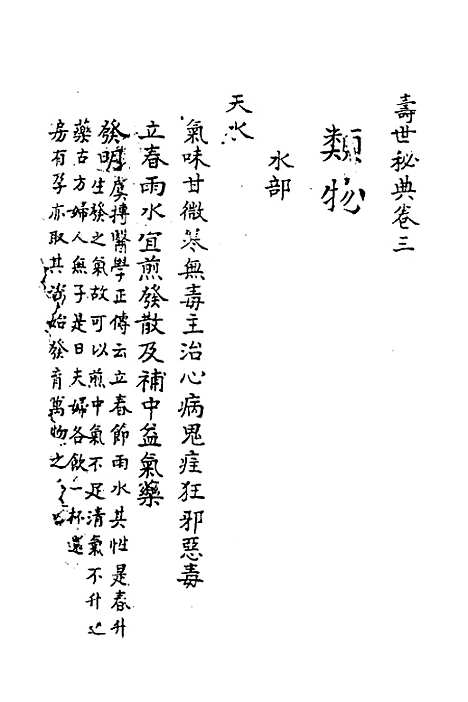 壽世秘典卷三
類物
水部
天水
氣味甘微寒無毒主治心病鬼疰狂邪惡毒
立春雨水宜煎發散及補中益氣藥
發明虞摶醫學正傳云立春節雨水其性是春升
生發之氣故可以煎中氣不足清氣不升之
藥古方婦人無子是日夫婦各飲一杯還
房有孕亦取其始發育萬物之